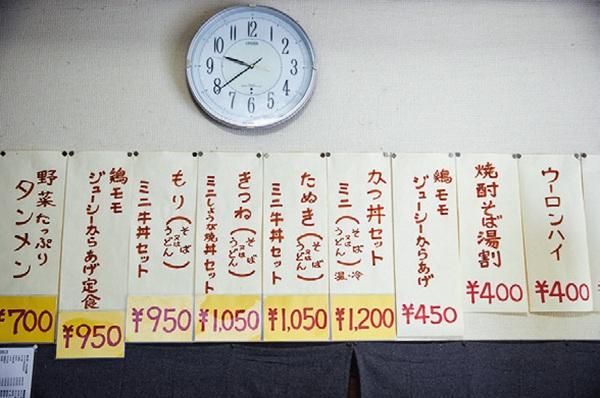 CITIZEN
12
1
2
3
4
5
6
7
8
9
10
11
野菜たっぷり
タンメン
¥700
鶏モモ
ジューシーからあげ定食
¥950
もり(そば又はうどん)
ミニ牛丼セット
¥950
きつね(そば又はうどん)
ミニしょうが焼丼セット
¥1,050
たぬき(そば又はうどん)
ミニ牛丼セット
¥1,050
カツ丼セット
ミニ(そば又はうどん)温・冷
¥1,200
鶏モモ
ジューシーからあげ
¥450
焼酎そば湯割
¥400
ウーロンハイ
¥400